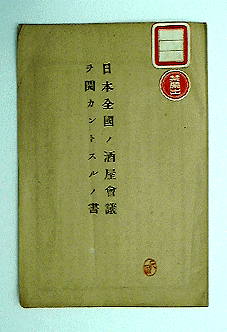 日本全國ノ酒屋會議
ヲ開カントスルノ書